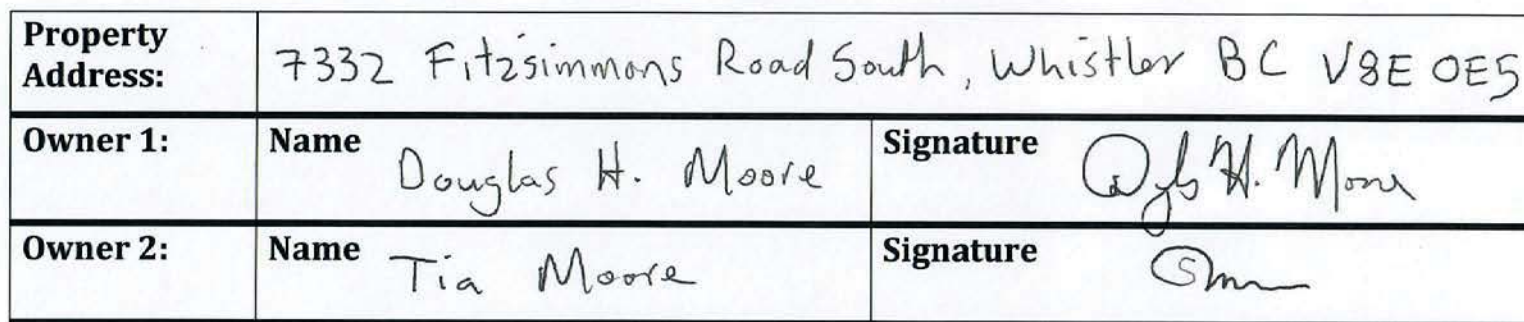 Property Address: 7332 Fitzsimmons Road South, Whistler BC V8E 0E5
Owner 1: Name Douglas H. Moore Signature H. Moore
Owner 2: Name Tia Moore Signature